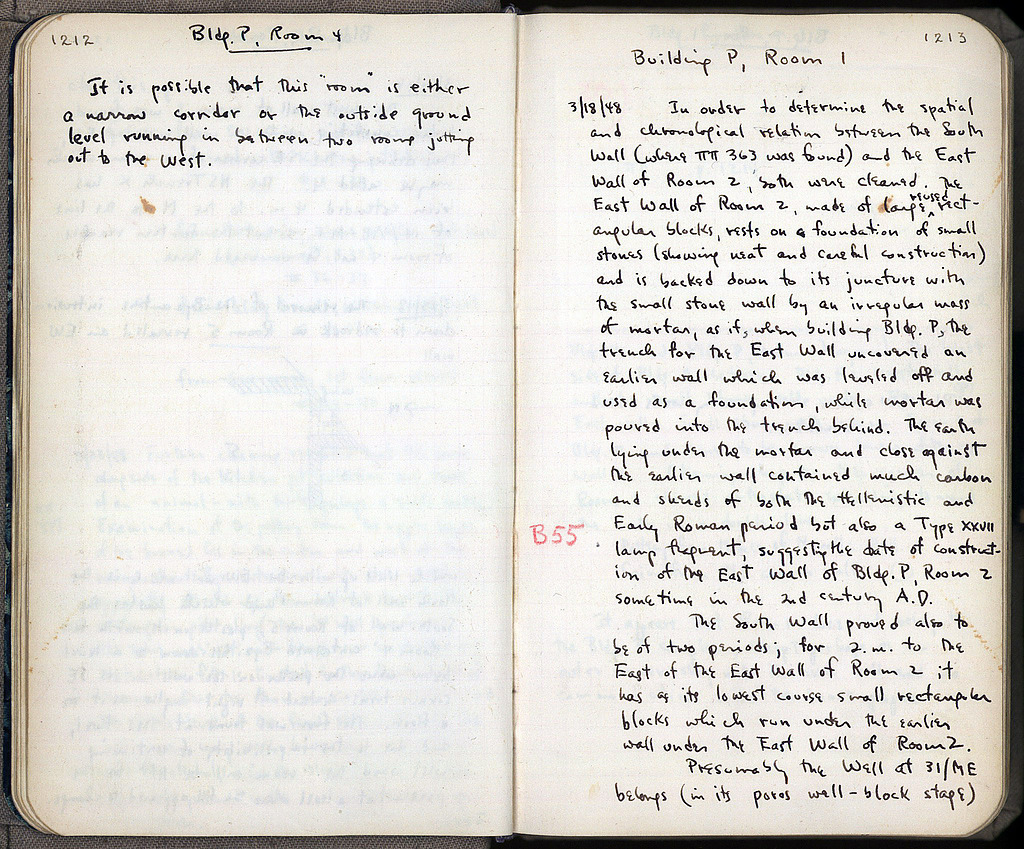 1212
Bldg. P, Room 4
It is possible that this "room" is either
a narrow corridor or the outside ground
level running in between two rooms jutting
out to the West.
1213
Building P, Room 1
3/18/48 In order to determine the spatial
and chronological relation between the South
Wall (where ΠΠ 363 was found) and the East
Wall of Room 2, both were cleaned. The
East Wall of Room 2, made of large, reused rect-
angular blocks, rests on a foundation of small
stones (showing neat and careful construction)
and is backed down to its juncture with
the small stone wall by an irregular mass
of mortar, as if, when building Bldg. P, the
trench for the East Wall uncovered an
earlier wall which was leveled off and
used as a foundation, while mortar was
poured into the trench behind. The earth
lying under the mortar and close against
the earlier wall contained much carbon
and sherds of both the Hellenistic and
Early Roman period but also a Type XXVII
B55
lamp fragment, suggesting the date of construct-
ion of the East Wall of Bldg. P, Room 2
sometime in the 2nd century A.D.
The South Wall proved also to
be of two periods; for 2. m. to the
East of the East Wall of Room 2 it
has as its lowest course small rectangular
blocks which run under the earlier
wall under the East Wall of Room 2.
Presumably the Well at 31/ME
belongs (in its poros well-block stage)